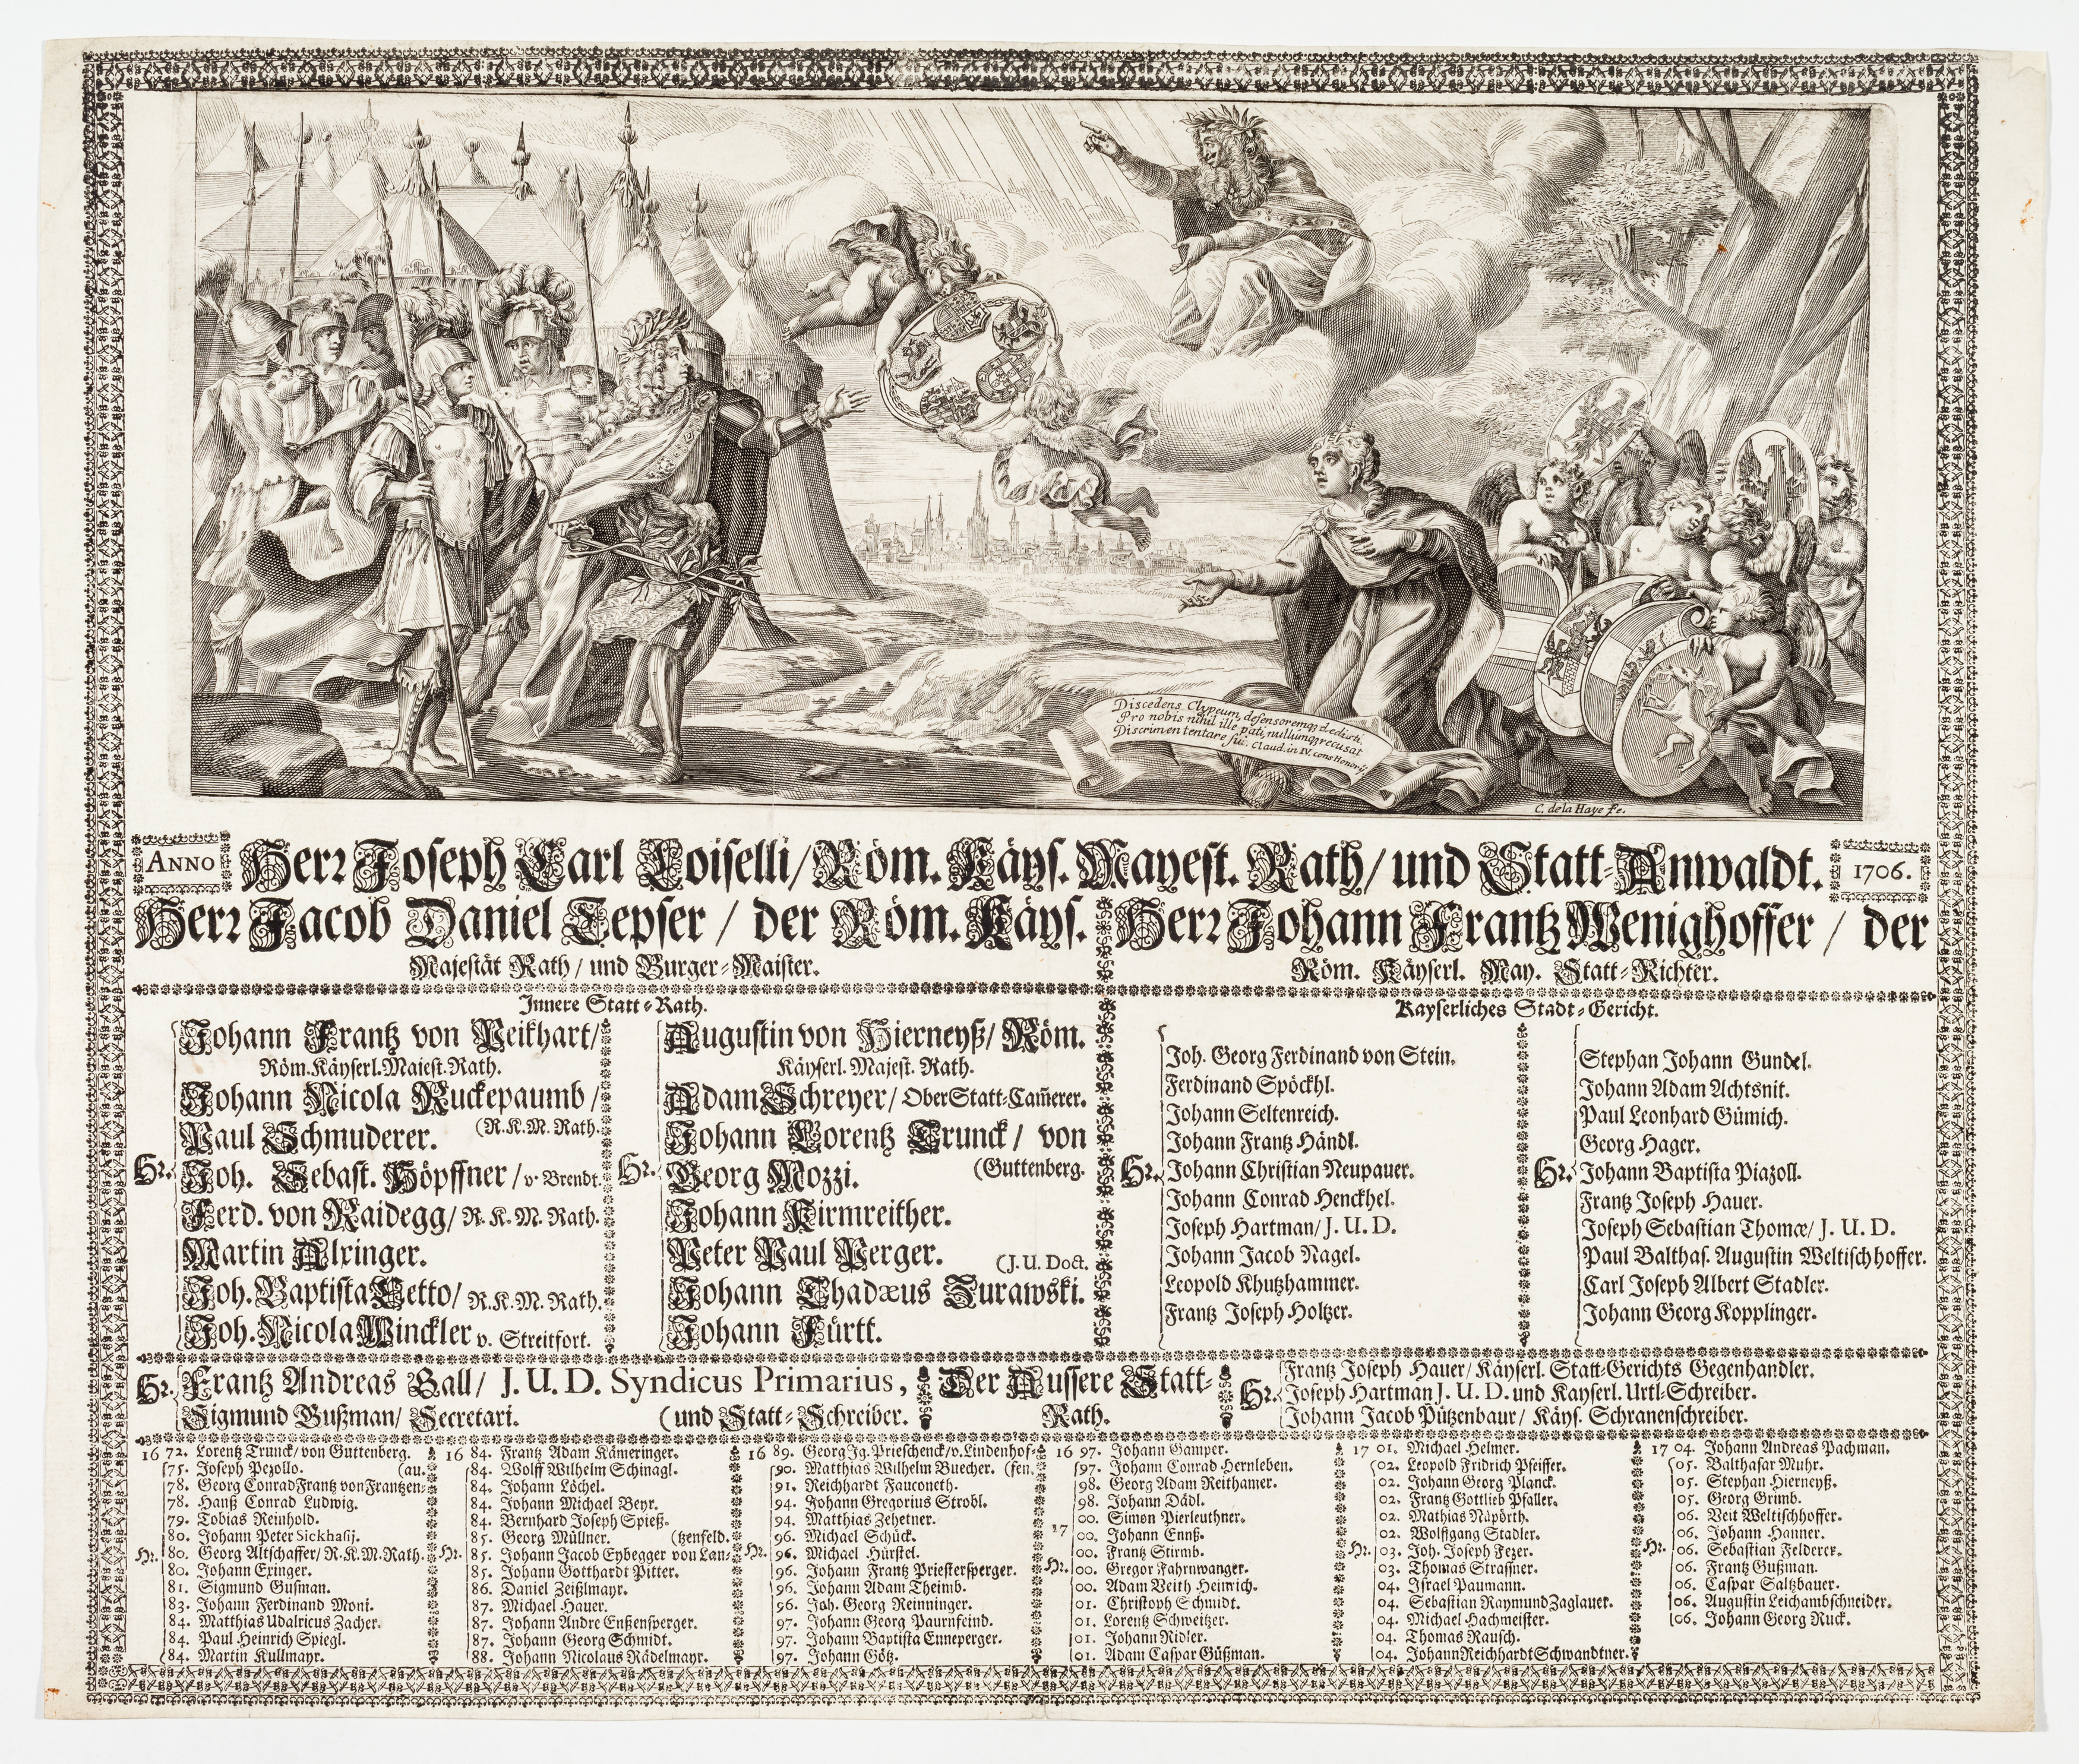 Discedens Clypeum, defensoremq; dedisti,
Pro nobis nihil ille pati, nullumq; recusat
Discrimen tentare sui. Claud. in IV. cons Honorij.
C. de la Haye fe.
ANNO
Herr Joseph Carl Loiselli/ Röm. Käys. Mayest. Rath/ und Statt-Anwaldt.
1706.
Herr Jacob Daniel Tepser / der Röm. Käys.
Majestät Rath/ und Burger-Maister.
Herr Johann Frantz Wenighoffer / der
Röm. Käyserl. May. Statt-Richter.
Innere Statt-Rath.
Hr.
Johann Frantz von Peikhart/
Röm. Käyserl. Maiest. Rath.
Johann Nicola Ruckepaumb /
(R.K.M. Rath.
Paul Schmuderer.
Joh. Sebast. Höpffner / v. Brendt.
Ferd. von Raidegg/ R. K. M. Rath.
Martin Alxinger.
Joh. Baptista Cetto/ R.K.M. Rath.
Joh. Nicola Winckler v. Streitfort.
Hr.
Augustin von Hierneyß/ Röm.
Käyserl. Majest. Rath.
Adam Schreyer/ Ober Statt-Cam̃erer.
Johann Lorentz Trunck/ von
(Guttenberg.
Georg Mozzi.
Johann Kirmreither.
Peter Paul Perger.
(J. U. Doct.
Johann Thadæus Zurawski.
Johann Fürtt.
Kayserliches Stadt-Gericht.
Hr.
Joh. Georg Ferdinand von Stein.
Ferdinand Spöckhl.
Johann Seltenreich.
Johann Frantz Händl.
Johann Christian Neupauer.
Johann Conrad Henckhel.
Joseph Hartman/ J. U. D.
Johann Jacob Nagel.
Leopold Khutzhammer.
Frantz Joseph Holtzer.
Hr.
Stephan Johann Gundel.
Johann Adam Achtsnit.
Paul Leonhard Gümich.
Georg Hager.
Johann Baptista Piazoll.
Frantz Joseph Hauer.
Joseph Sebastian Thomæ/ J. U. D.
Paul Balthas. Augustin Weltischhoffer.
Carl Joseph Albert Stadler.
Johann Georg Kopplinger.
Hr. Frantz Andreas Gall/ J. U. D. Syndicus Primarius,
(und Statt-Schreiber.
Sigmund Bußman/ Secretari.
Der Aussere Statt-
Rath.
Hr.
Frantz Joseph Hauer/ Käyserl. Statt-Gerichts Gegenhandler.
Joseph Hartman J. U. D. und Kayserl. Urtl-Schreiber.
Johann Jacob Pützenbaur/ Käys. Schranenschreiber.
16 72. Lorentz Trunck/ von Guttenberg.
75. Joseph Pezollo. (au.
78. Georg Conrad Frantz von Frantzen-
78. Hanß Conrad Ludwig.
79. Tobias Reinhold.
80. Johann Peter Sickhasij.
Hr. 80. Georg Altschaffer/ R.K.M. Rath.
80. Johann Exinger.
81. Sigmund Gußman.
83. Johann Ferdinand Moni.
84. Matthias Udalricus Zacher.
84. Paul Heinrich Spiegl.
84. Martin Kullmayr.
16 84. Frantz Adam Kämeringer.
84. Wolff Wilhelm Schinagl.
84. Johann Löchel.
84. Johann Michael Beyr.
84. Bernhard Joseph Spieß.
85. Georg Müllner. (tzenfeld.
Hr. 85. Johann Jacob Eybegger von Lan-
85. Johann Gotthardt Pitter.
86. Daniel Zeißlmayr.
87. Michael Hauer.
87. Johann Andre Enßensperger.
87. Johann Georg Schmidt.
88. Johann Nicolaus Rädelmayr.
16 89. Georg Jg. Prieschenck/v. Lindenhof-
90. Matthias Wilhelm Buecher. (fen.
91. Reichhardt Fauconeth.
94. Johann Gregorius Strobl.
94. Matthias Zehetner.
96. Michael Schück.
Hr. 96. Michael Hürstel.
96. Johann Frantz Priestersperger.
96. Johann Adam Theimb.
96. Joh. Georg Reinninger.
97. Johann Georg Paurnfeind.
97. Johann Baptista Enneperger.
97. Johann Götz.
16 97. Johann Gamper.
97. Johann Conrad Hernleben.
98. Georg Adam Reithamer.
98. Johann Dädl.
17 00. Simon Pierleuthner.
00. Johann Ennß.
00. Frantz Stirmb.
Hr. 00. Gregor Fahrnwanger.
00. Adam Veith Heinrich.
01. Christoph Schmidt.
01. Lorentz Schweitzer.
01. Johann Ridler.
01. Adam Caspar Güßman.
17 01. Michael Helmer.
02. Leopold Fridrich Pfeiffer.
02. Johann Georg Planck.
02. Frantz Gottlieb Pfaller.
02. Mathias Näpörth.
02. Wolffgang Stadler.
Hr. 03. Joh. Joseph Fezer.
03. Thomas Strasser.
04. Israel Paumann.
04. Sebastian Raymund Zaglauer.
04. Michael Hachmeister.
04. Thomas Rausch.
04. Johann Reichhardt Schwandtner.
17 04. Johann Andreas Pachman.
05. Balthasar Muhr.
05. Stephan Hierneyß.
05. Georg Grimb.
06. Veit Weltischhoffer.
06. Johann Hanner.
Hr. 06. Sebastian Felderer.
06. Frantz Gußman.
06. Caspar Saltzbauer.
06. Augustin Leichambschneider.
06. Johann Georg Ruck.